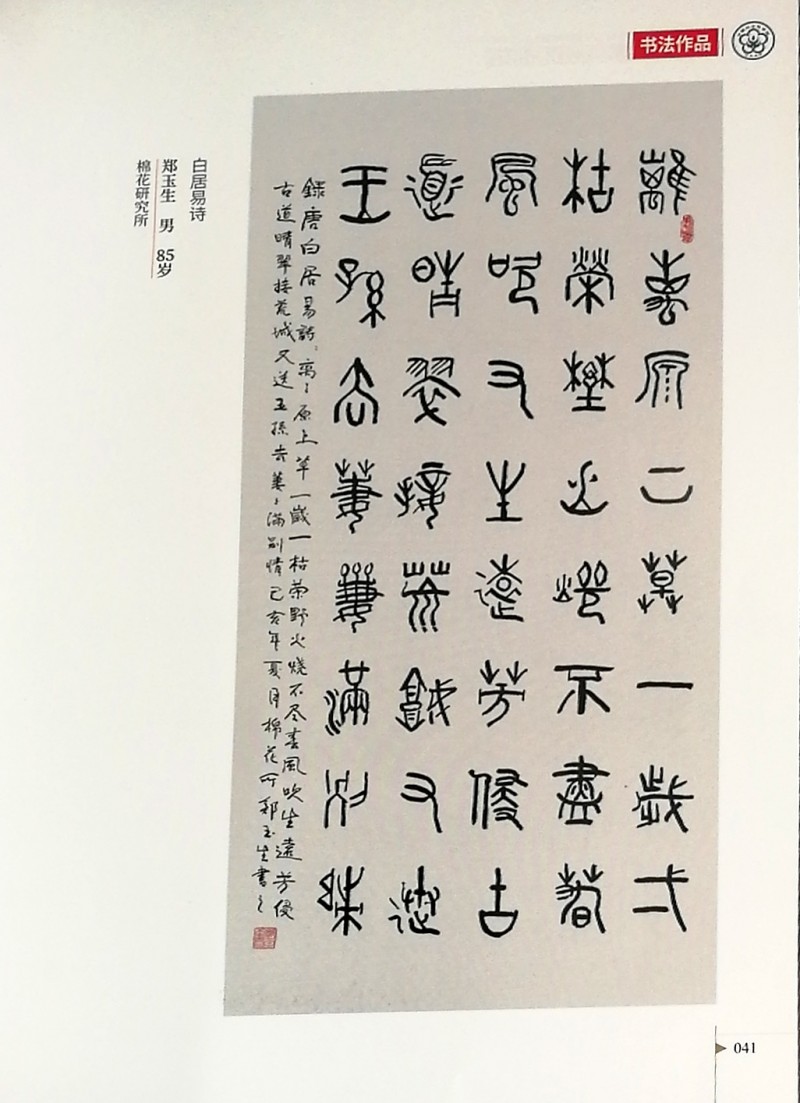 书法作品
離离原上草一歲弌
枯榮野火燒不盡春
風吹又生遠芳侵古
道晴翠接荒城又送
王孫去萋萋滿別情
錄唐白居易詩:离〻原上草一歲一枯荣野火烧不尽春風吹生遠芳侵
古道晴翠接荒城又送王孫去萋〻滿别情己亥年夏月棉花所郑玉生書之
白居易诗
郑玉生 男 85岁
棉花研究所
041